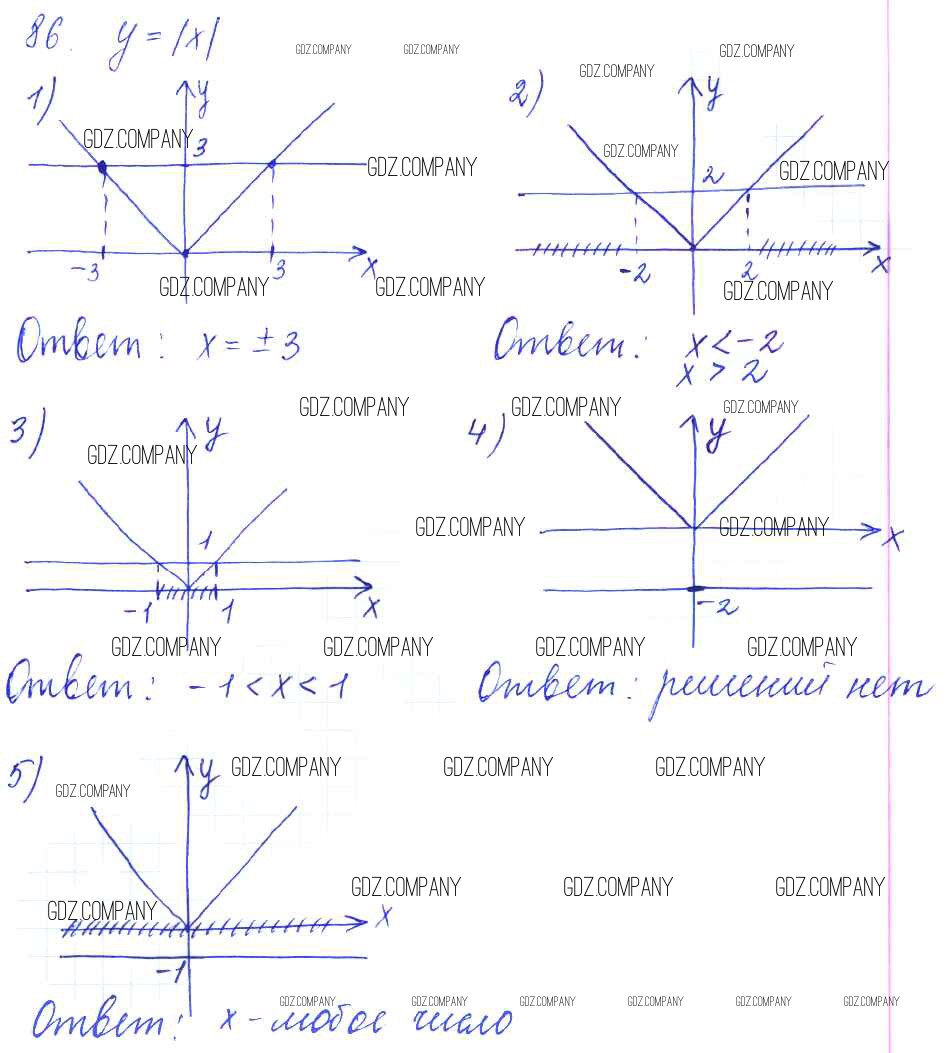 86. y = |x|
GDZ.COMPANY GDZ.COMPANY GDZ.COMPANY
GDZ.COMPANY
1) y 3 -3 3 x
GDZ.COMPANY GDZ.COMPANY
GDZ.COMPANY GDZ.COMPANY
Ответ: x = ±3
2) y 2 -2 2 x
GDZ.COMPANY GDZ.COMPANY
GDZ.COMPANY
Ответ: x < -2
x > 2
GDZ.COMPANY GDZ.COMPANY GDZ.COMPANY
3) y 1 -1 1 x
GDZ.COMPANY
4) y x -2
GDZ.COMPANY GDZ.COMPANY
GDZ.COMPANY GDZ.COMPANY GDZ.COMPANY GDZ.COMPANY
Ответ: -1 < x < 1
Ответ: решений нет
5) y x -1
GDZ.COMPANY GDZ.COMPANY GDZ.COMPANY
GDZ.COMPANY
GDZ.COMPANY GDZ.COMPANY GDZ.COMPANY
GDZ.COMPANY
GDZ.COMPANY GDZ.COMPANY GDZ.COMPANY GDZ.COMPANY GDZ.COMPANY GDZ.COMPANY
Ответ: x - любое число